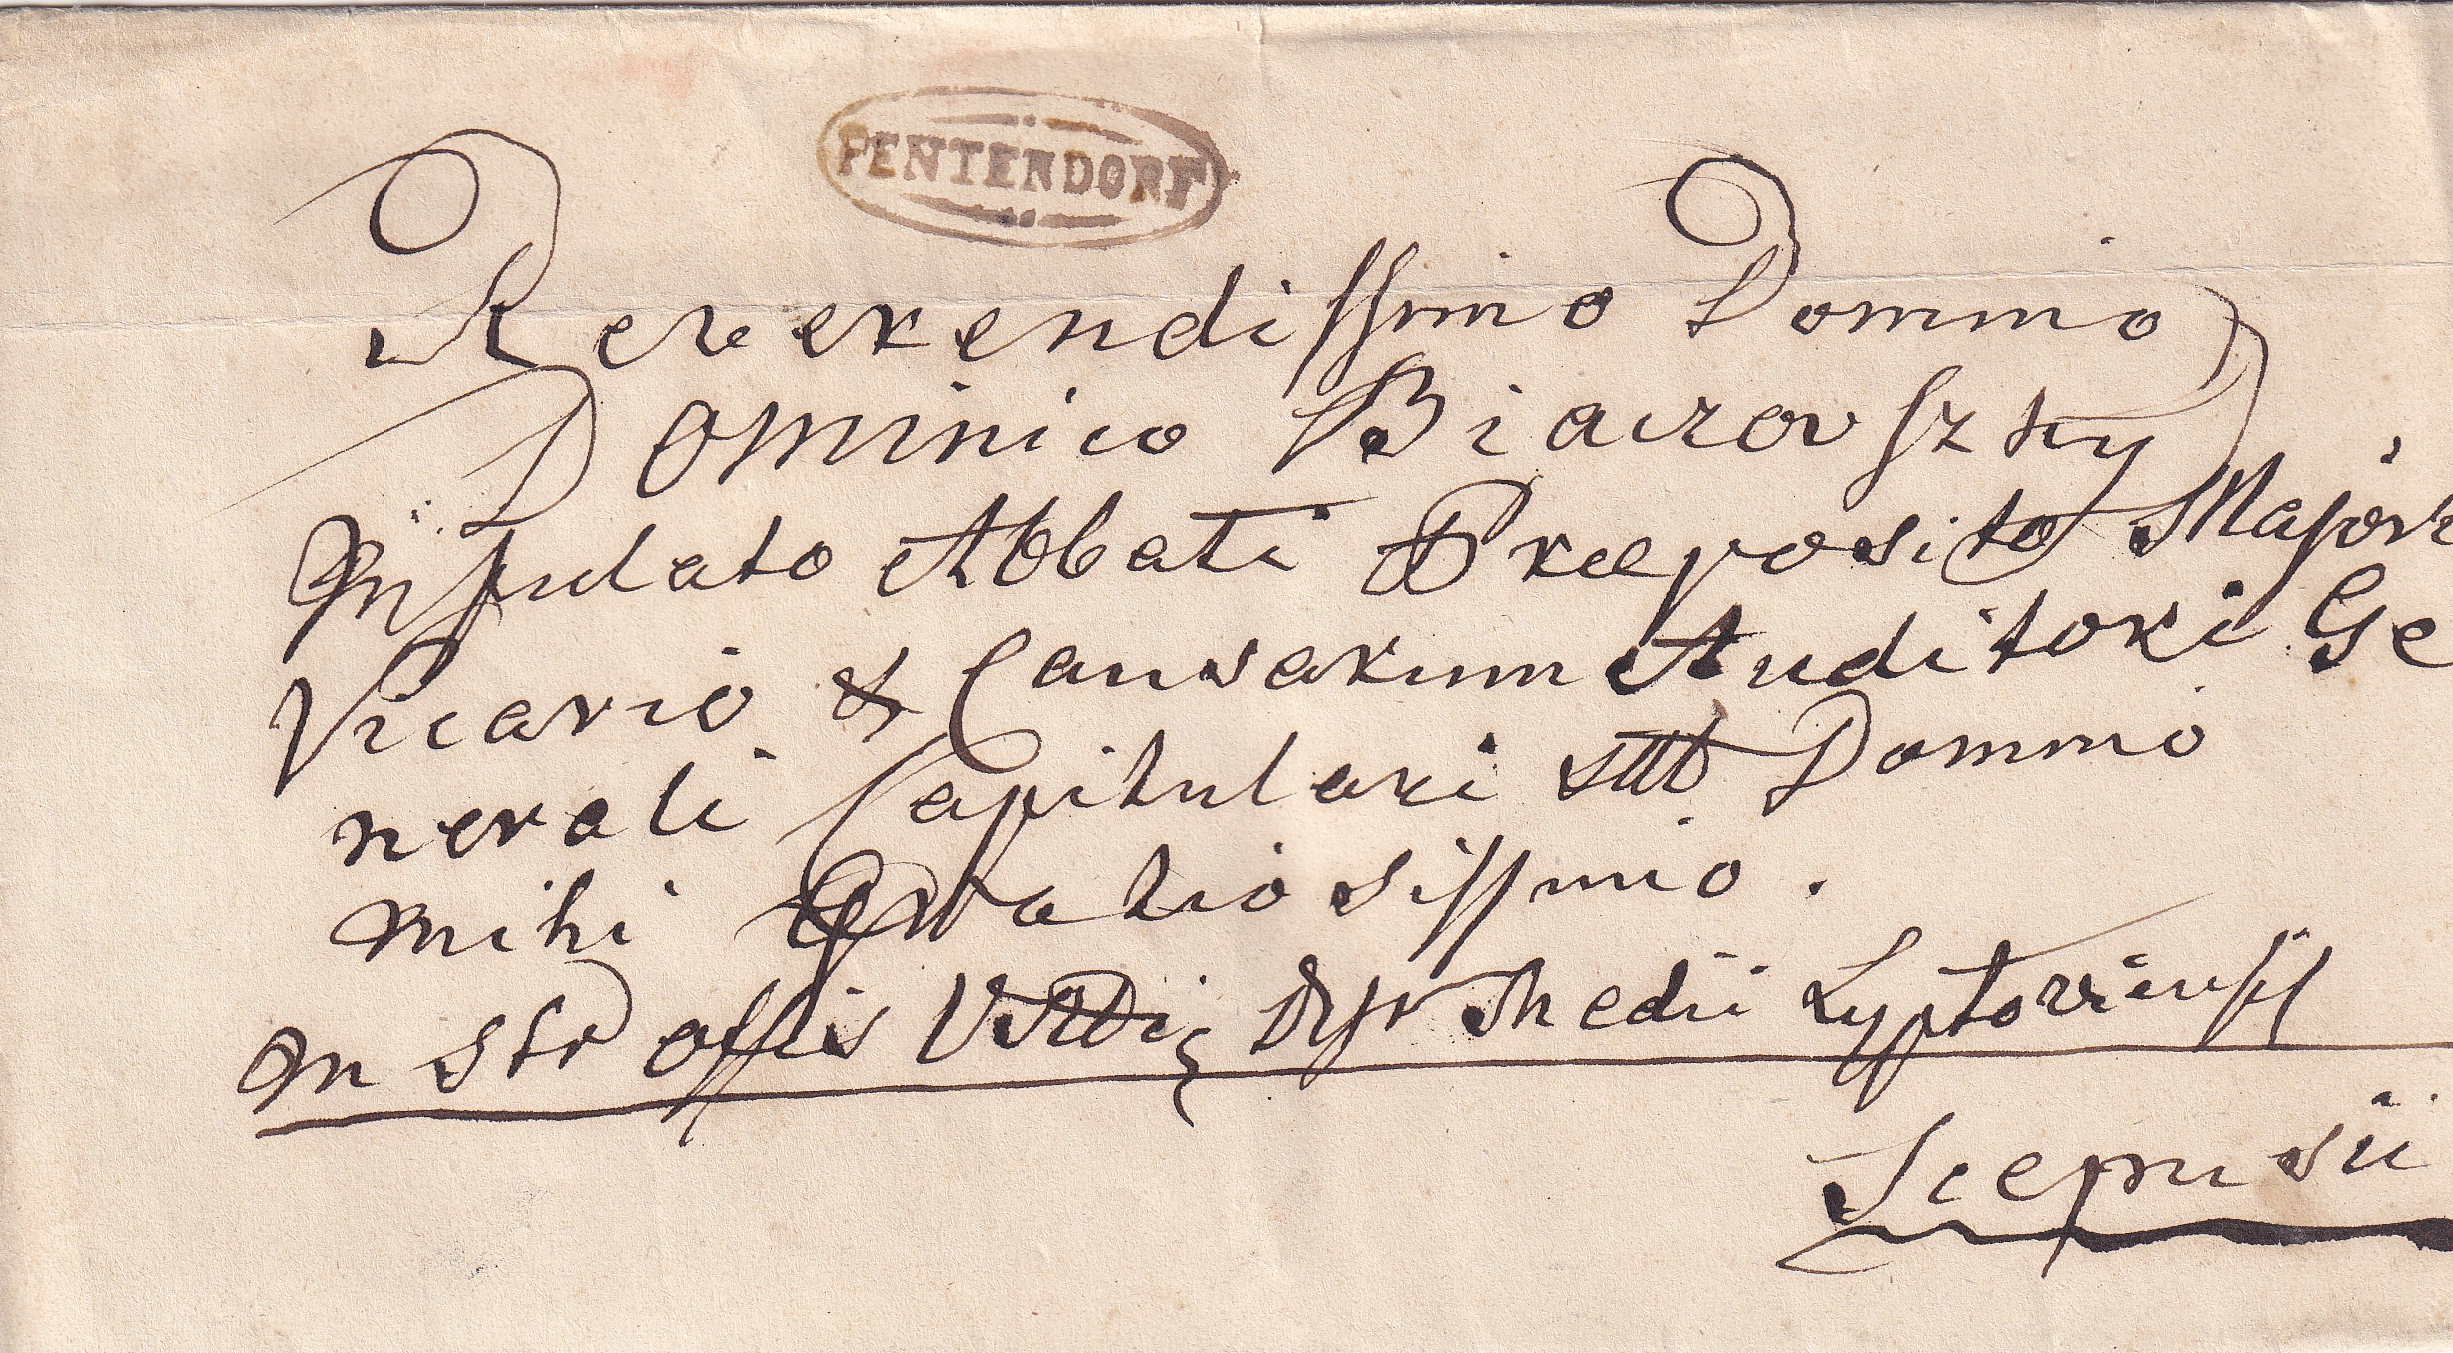 PENTENDORF
Reverendissimo Domino
Dominico Biaczovszky
Infulato Abbati Praeposito Majori
Vicario & Causarum Auditori Ge
nerali Capitulari ut Domino
mihi Gratiosissimo.
In offis Medii Lyptoviensis
Scepusii